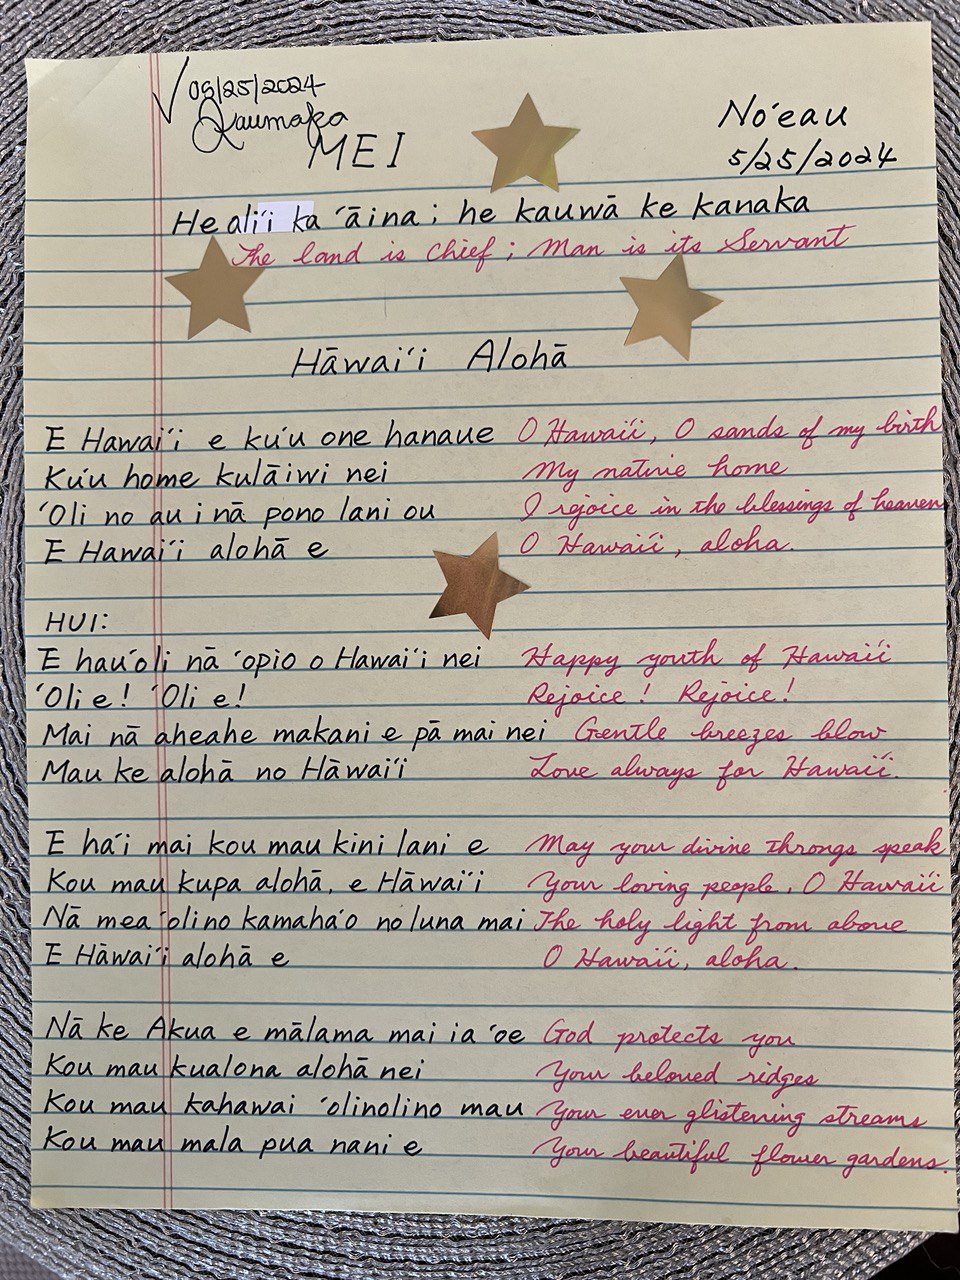 05/25/2024
Kaumaka
MEI
Noʻeau
5/25/2024
He aliʻi ka ʻāina; he kauwā ke kanaka
The land is chief; Man is its Servant
Hāwaiʻi Alohā
E Hawaiʻi e kuʻu one hanaue O Hawaiʻi, O sands of my birth
Kuʻu home kulāiwi nei My native home
ʻOli no au i nā pono lani ou I rejoice in the blessings of heaven
E Hawaiʻi alohā e O Hawaiʻi, aloha.
HUI:
E hauʻoli nā ʻopio o Hawaiʻi nei Happy youth of Hawaiʻi
ʻOli e! ʻOli e! Rejoice! Rejoice!
Mai nā aheahe makani e pā mai nei Gentle breezes blow
Mau ke alohā no Hāwaiʻi Love always for Hawaiʻi.
E haʻi mai kou mau kini lani e May your divine throngs speak
Kou mau kupa alohā, e Hāwaiʻi Your loving people, O Hawaiʻi
Nā mea ʻolino kamahaʻo no luna mai The holy light from above
E Hāwaiʻi alohā e O Hawaiʻi, aloha.
Nā ke Akua e mālama mai ia ʻoe God protects you
Kou mau kualona alohā nei Your beloved ridges
Kou mau kahawai ʻolinolino mau Your ever glistening streams
Kou mau mala pua nani e Your beautiful flower gardens.